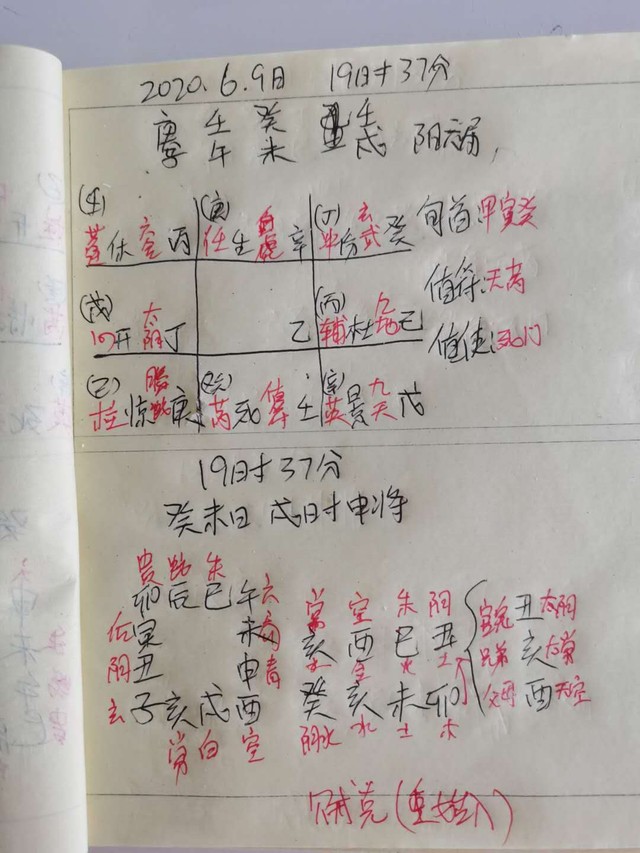 2020.6.9日 19时37分
庚 壬 癸 壬
子 午 未 戌 阴六局,
(庚) (丁) 玄 旬首甲寅癸
蓬休六合丙 任生白虎辛 冲伤武癸
值符:天芮
(戊) 太 (丙) 九
心开阴丁 乙 辅杜地己 值使:死门
(乙) (癸) 九
柱惊 庚 芮死值符壬 英景天戊
19时37分
癸未日 戌时申将
贵 蛇 朱
卯辰巳午六
后寅 未 常 空 朱 阴 丑太阴
阴丑 申青 亥 酉 巳 丑 兄弟 亥太常
玄子亥戌酉 癸 亥 未 卯 父母 酉天空
常 白 空 阴水 水 土 木